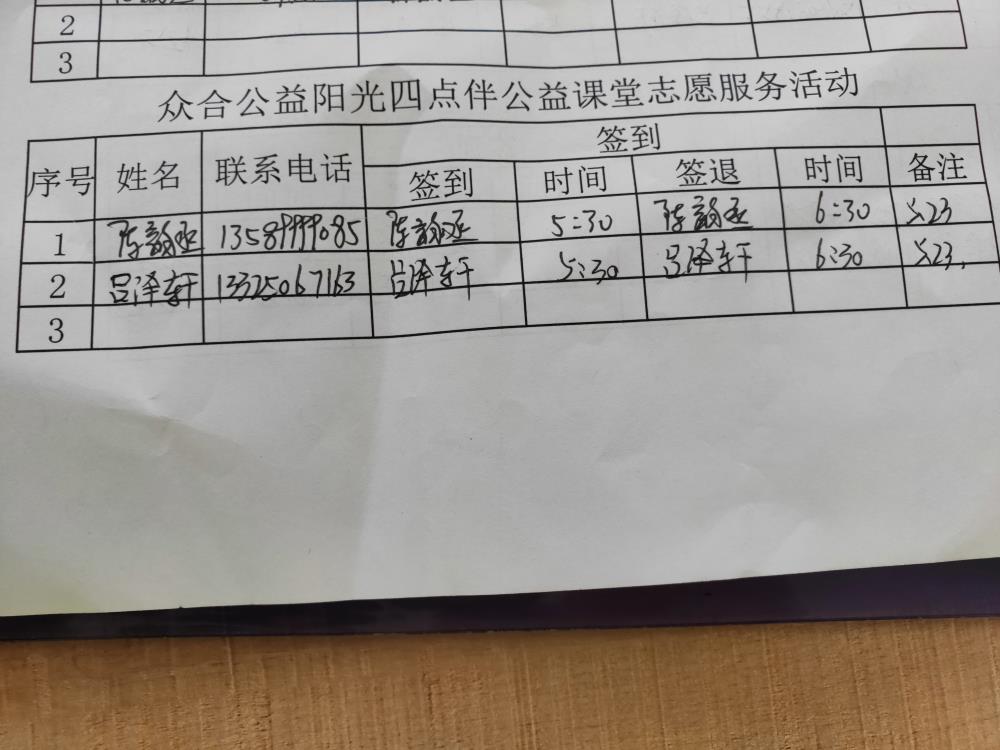 2
3
众合公益阳光四点伴公益课堂志愿服务活动
签到
序号 姓名 联系电话 签到 时间 签退 时间 备注
1 陈韵丞 13589999085 陈韵丞 5:30 陈韵丞 6:30 5.23
2 吕泽轩 13325067163 吕泽轩 5:30 吕泽轩 6:30 5.23.
3